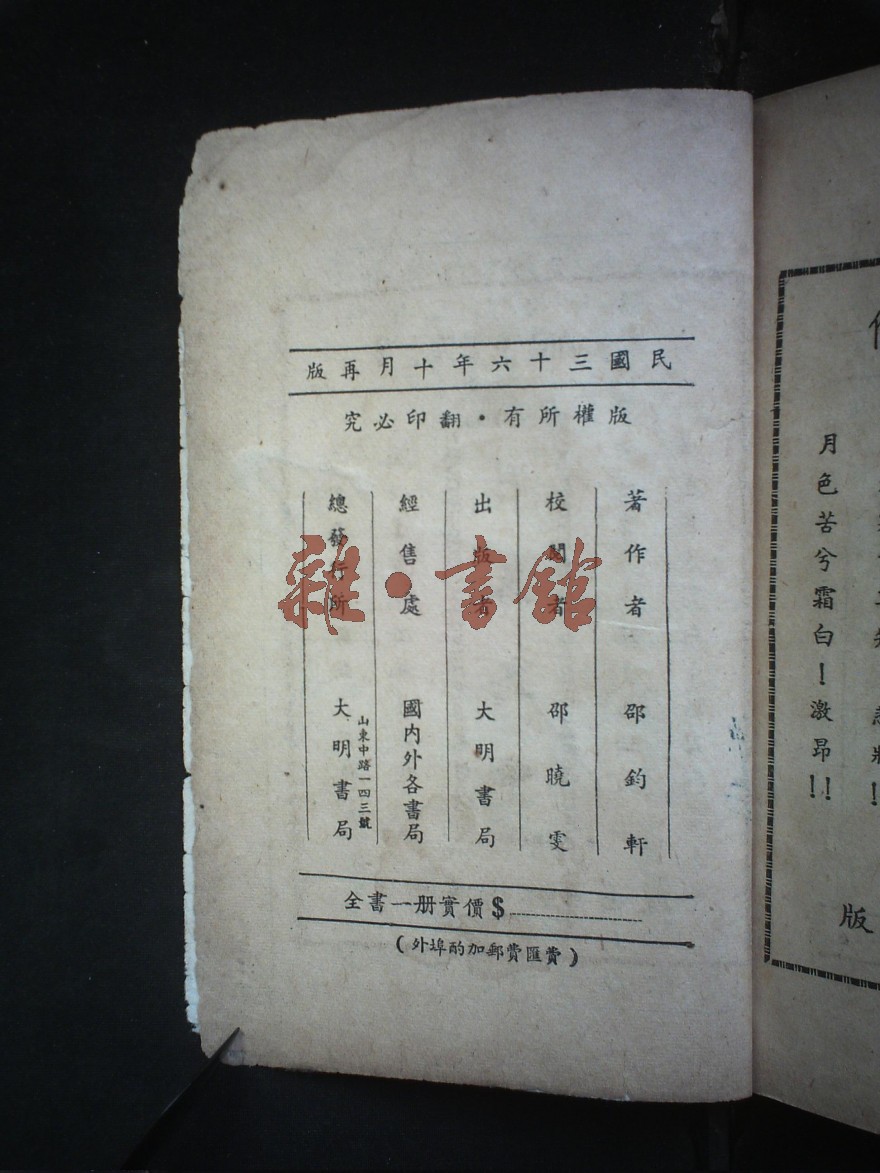 民國三十六年十月再版
版權所有・翻印必究
著作者 邵鈞軒
校閱者 邵曉雯
出版者 大明書局
經售處 國內外各書局
總發行所 大明書局
山東中路一四三號
全書一册實價$
(外埠酌加郵費匯費)
雜·書館
月色苦兮霜白!激昂!!
版